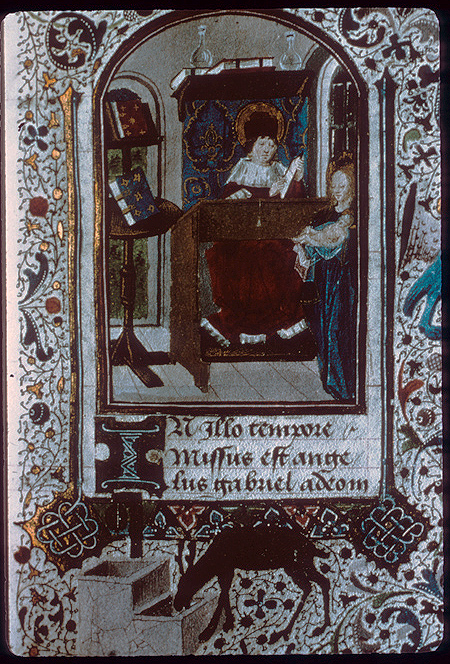 IN Illo tempore
Missus est ange
lus gabriel adeom